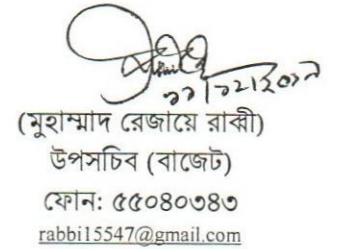 ১১/১২/২০১৭
(মুহাম্মাদ রেজায়ে রাব্বী)
উপসচিব (বাজেট)
ফোন: ৫৫০৪০৩৪৩
rabbi15547@gmail.com